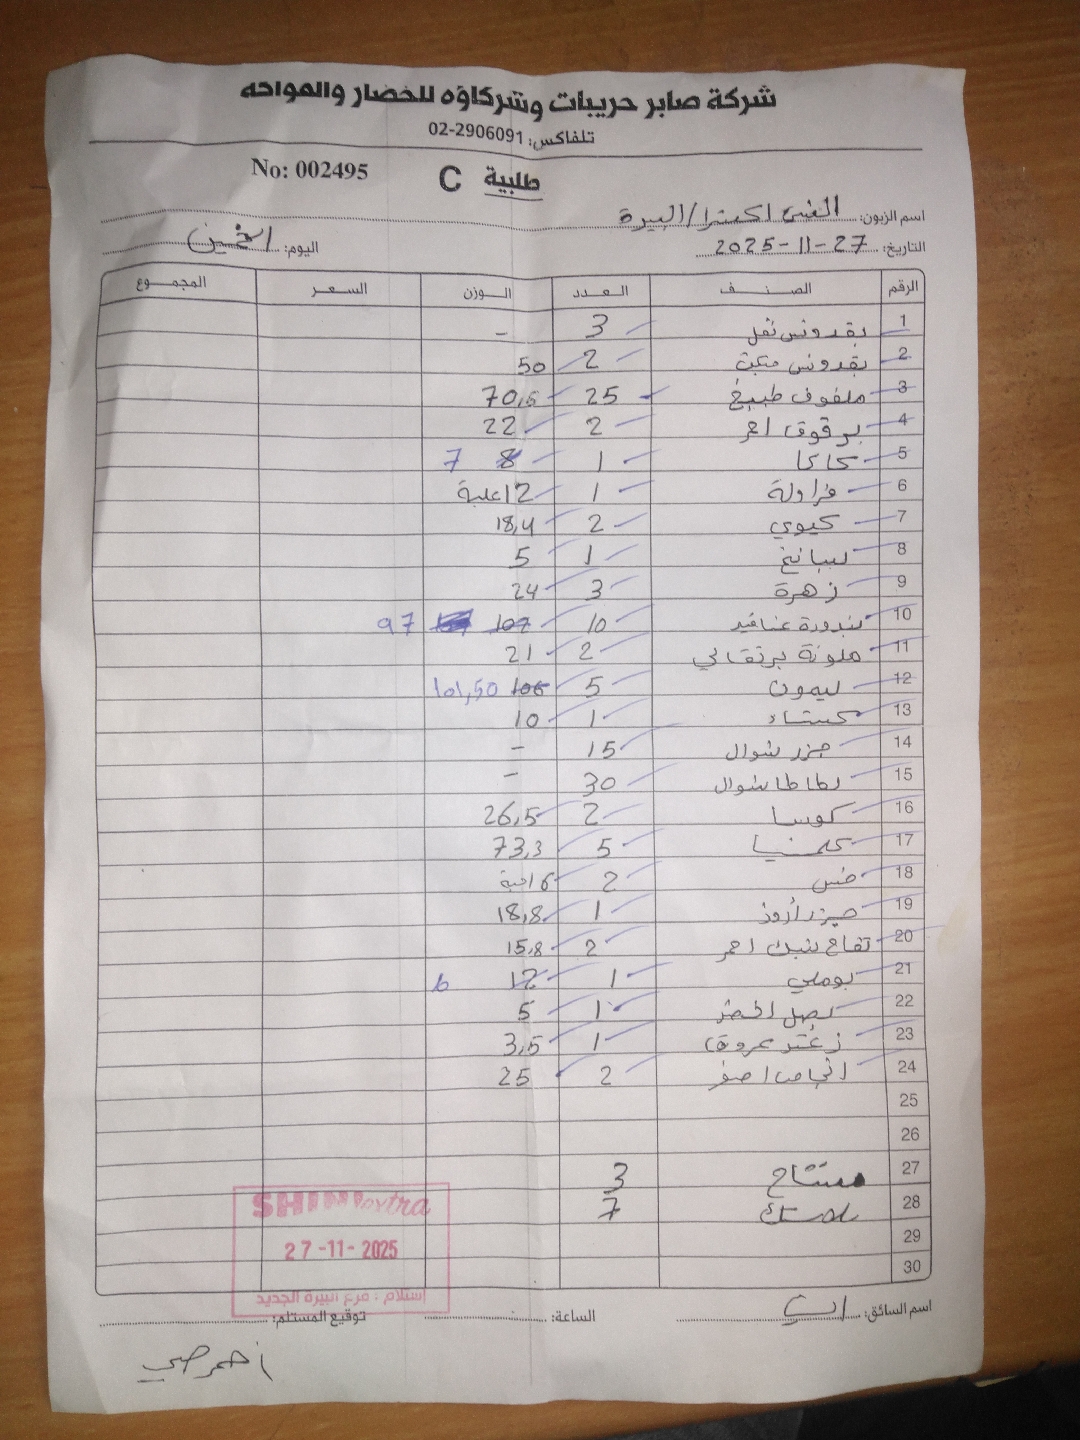 شركة صابر حريبات وشركاؤه للخضار والفواكه
تلفاكس: 02-2906091
No: 002495 C طلبية
اسم الزبون: الشني اكسترا/البيرة
التاريخ: 27-11-2025 اليوم: الخميس
الرقم الصنف العدد الوزن السعر المجموع
1 بقدونس نقل 3 -
2 بقدونس 2 50
3 ملفوف طبيخ 25 70,5
4 برقوق احمر 2 22
5 كاكا 1 8 7
6 فراولة 1 12 علبة
7 كيوي 2 18,4
8 سبانخ 1 5
9 زهرة 3 24
10 بندورة عناقيد 10 107 97
11 ملونة برتقالي 2 21
12 ليمون 5 106 101,50
13 كستناء 1 10
14 جزر شوال 15 -
15 بطاطا شوال 30 -
16 كوسا 2 26,5
17 كلمنتينا 5 73,3
18 خس 2 16 حبة
19 1 18,8
20 تفاح احمر 2 15,8
21 بوملي 1 12 6
22 بصل اخضر 1 5
23 زعتر عروق 1 3,5
24 انجاص اصفر 2 25
25
26
27 مشتاح 3
28 بلاستك 7
29
30
SHINI extra
27-11-2025
استلام: فرع البيرة الجديد
اسم السائق: الساعة: توقيع المستلم:
احمد